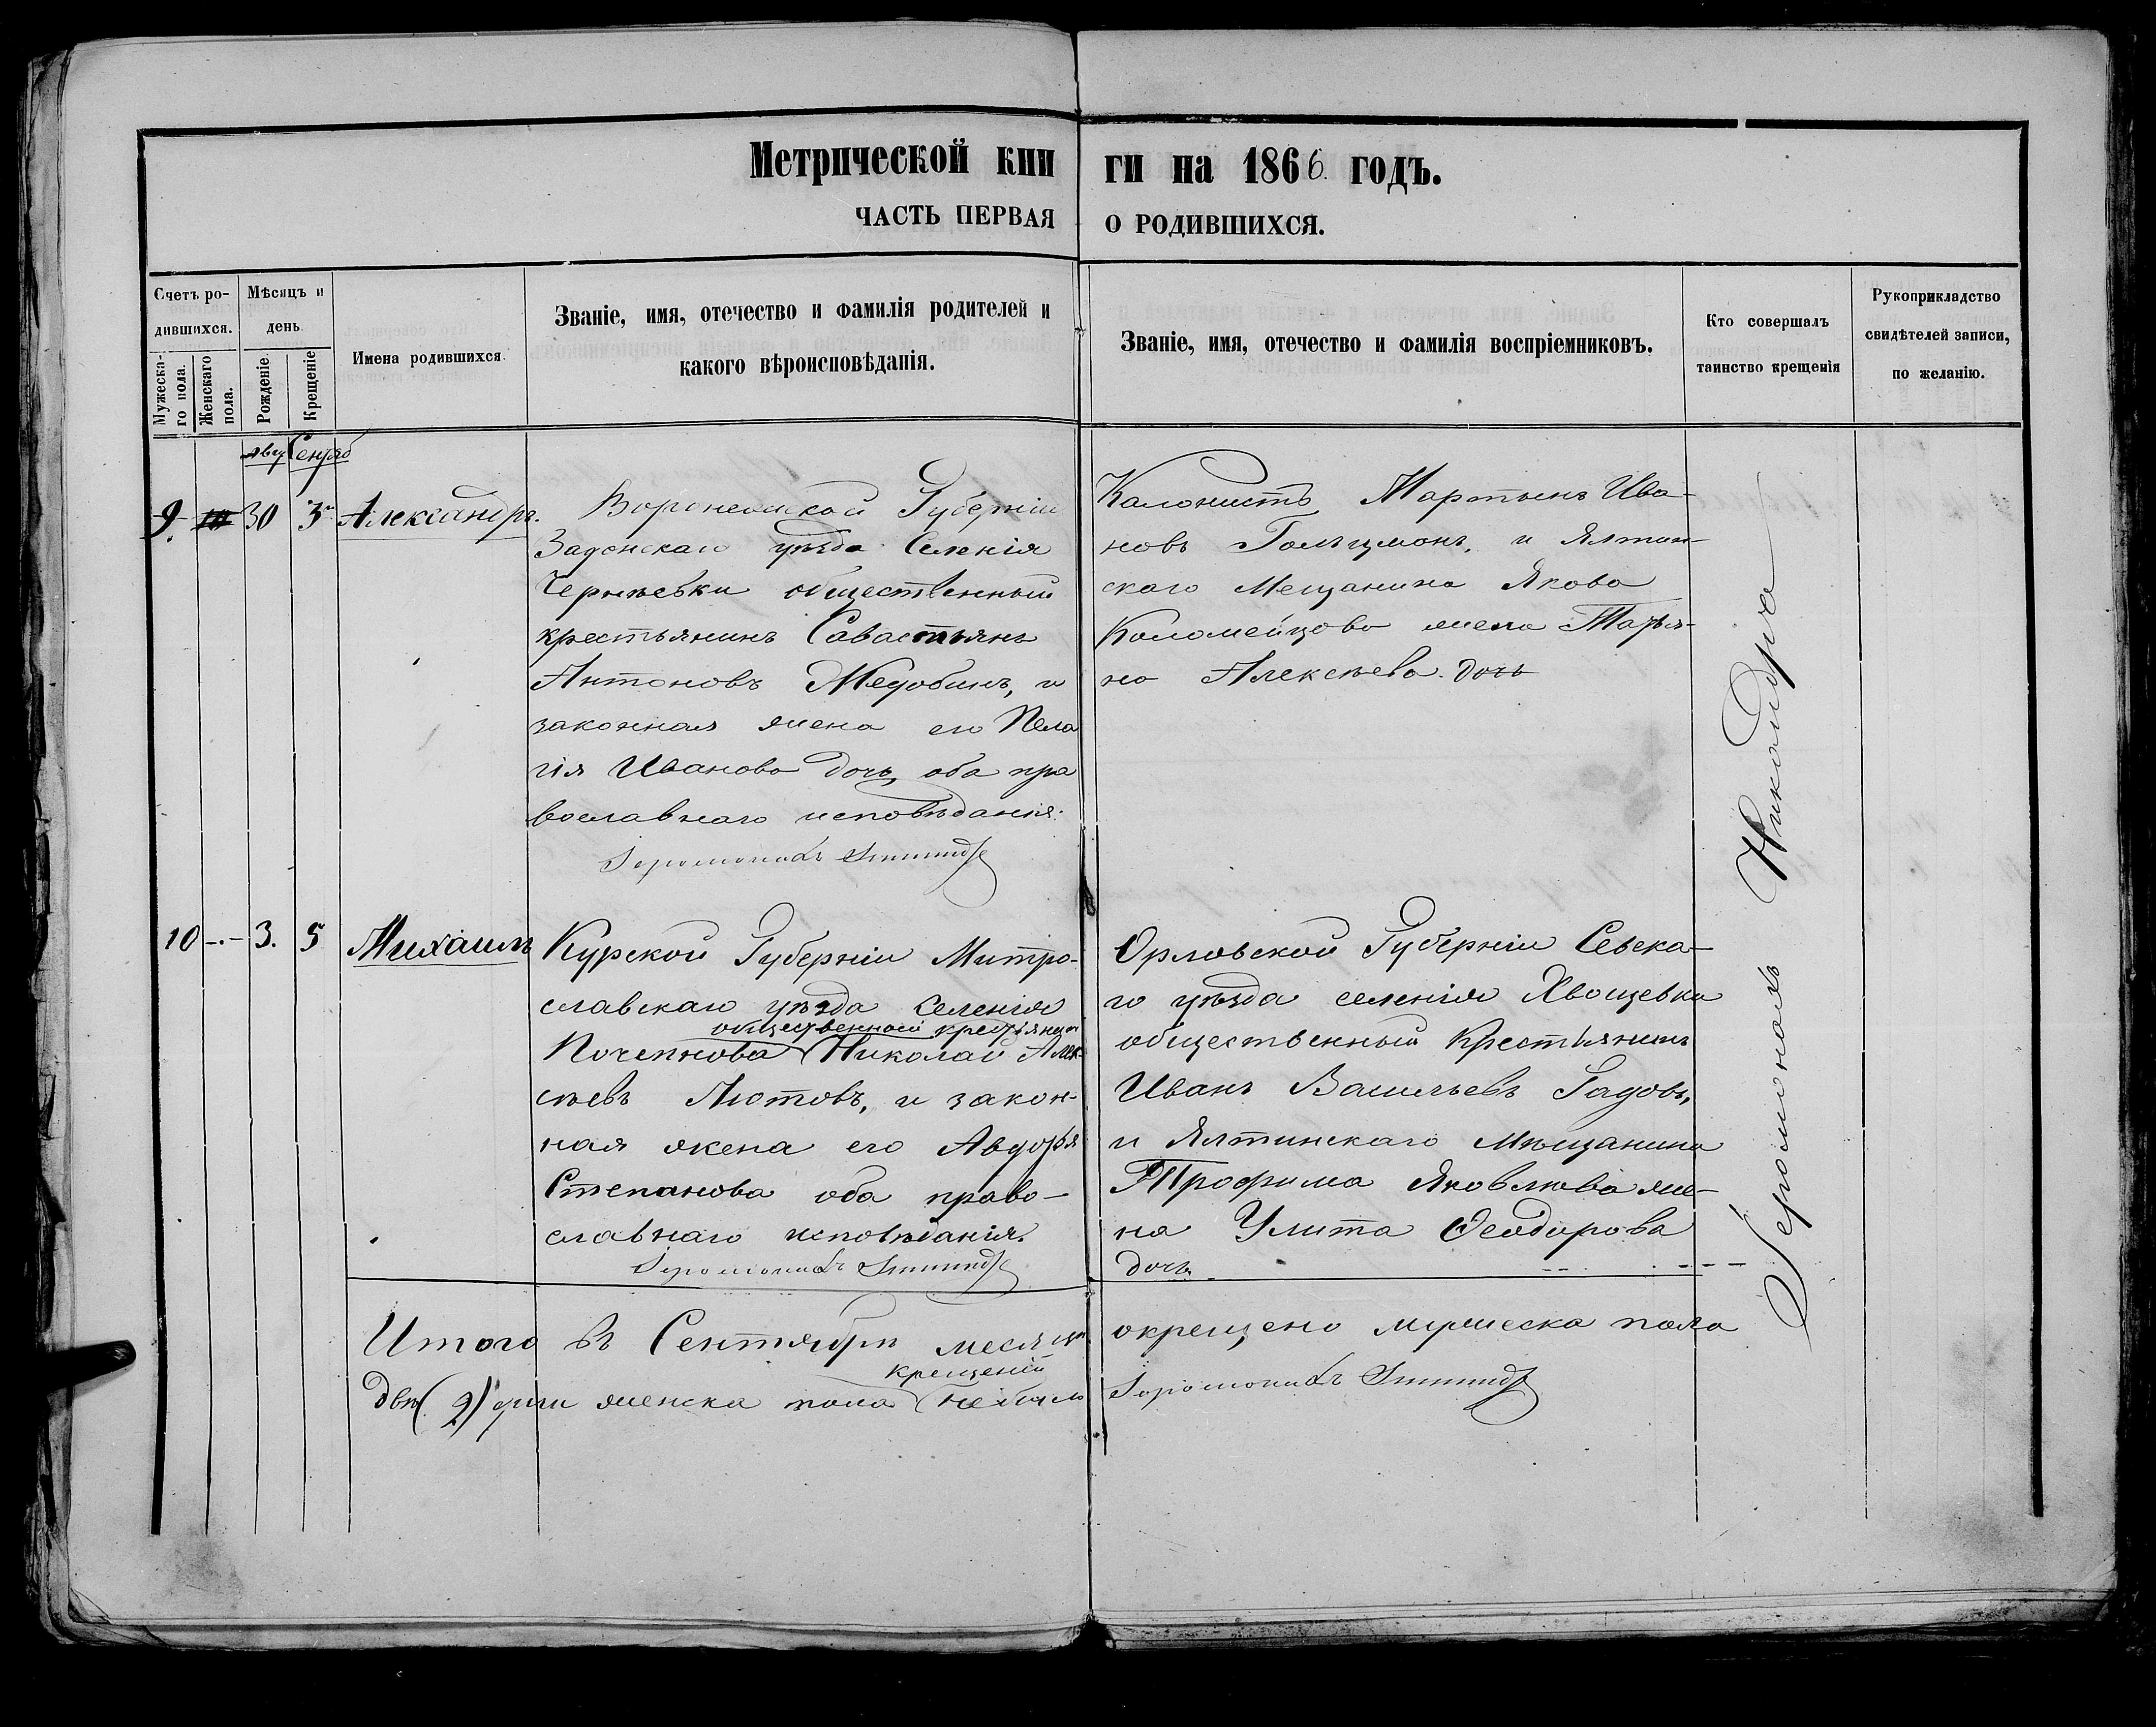 Метрической кни ги на 1866. годъ.
ЧАСТЬ ПЕРВАЯ О РОДИВШИХСЯ.
Счетъ родившихся.
Мужескаго пола.
Женскаго пола.
Мѣсяцъ и день.
Рожденіе.
Крещеніе
Имена родившихся.
Званіе, имя, отечество и фамилія родителей и
какого вѣроисповѣданія.
Званіе, имя, отечество и фамилія воспріемниковъ.
Кто совершалъ
таинство крещенія
Рукоприкладство
свидѣтелей записи,
по желанію.
Авг Сентяб
9. 30 3 Александръ.
Воронежской Губерніи
Задонскаго уѣзда Селенія
общественный
крестьянинъ Савастьянъ
Антоновъ и
законная жена его Пела
гія Иванова дочь, оба пра
вославнаго исповѣданія.
Іеромонахъ
Калонистъ Мартынъ Ива-
новъ Гольцманъ, и Ялтин-
скаго Мещанина Якова
Коломейцова жена Татья-
на Алексѣева дочь
10 -.- 3. 5 Михаилъ
Курской Губерніи Митро-
славскаго уѣзда Селенія
общественной крестьянин
Почепкова Николай Алек
сѣевъ Лютовъ, и закон-
ная жена его Авдотья
Степанова оба право-
славнаго исповѣданія.
Іеромонахъ
Орловской Губерніи Севска-
го уѣзда селенія Хвощевки
общественный Крестьянинъ
Иванъ Васильевъ Гадовъ,
и Ялтинскаго Мѣщанина
Трофима Яковлева же-
на Улита Феодорова
дочь
Іеромонахъ Никандръ
Итого въ Сентябрѣ месяцѣ окрещено мужеска пола
крещеній
двѣ (2) души женска пола не было
Іеромонахъ